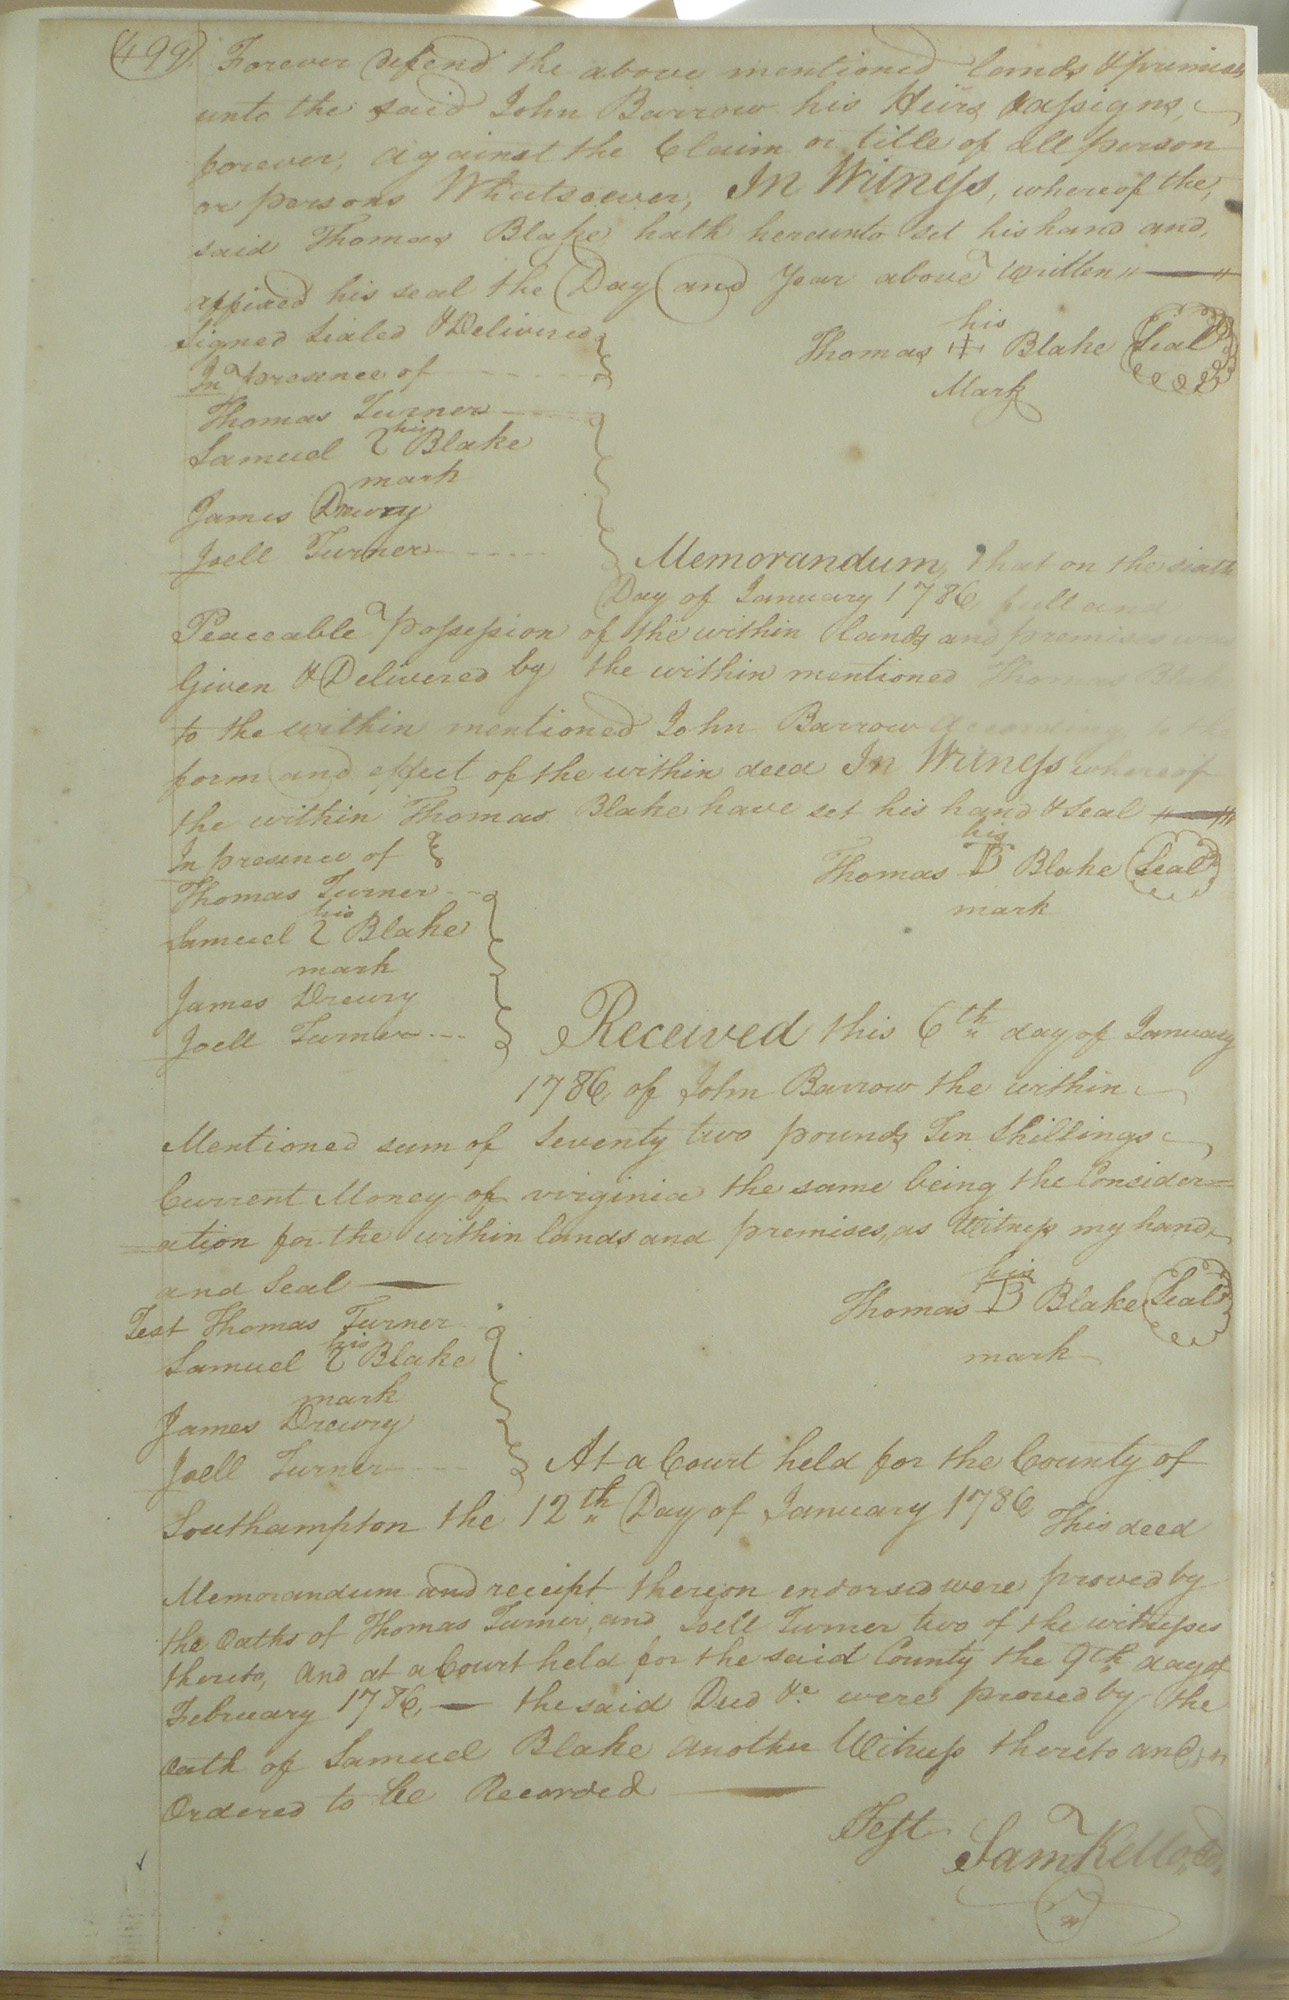 (499)
Forever defend the above mentioned lands & premises
unto the said John Barrow his Heirs & assigns,
forever, against the Claim or title of all person
or persons Whatsoever, In Witness, whereof the,
said Thomas Blake hath hereunto set his hand and,
affixed his seal the Day and Year above written
Signed Sealed & Delivered
In presence of
his
Thomas ‡ Blake Seal
Mark
Thomas Turner
his
Samuel 2 Blake
mark
James Drewry
Joell Turner
Memorandum, that on the sixth
Day of January 1786, full and
Peaceable possession of the within lands and premises was
Given & Delivered by the within mentioned Thomas Blake
to the within mentioned John Barrow according to the
form and effect of the within deed In Witness whereof
the within Thomas Blake have set his hand & Seal
In presence of
his
Thomas B Blake Seal
mark
Thomas Turner
his
Samuel 2 Blake
mark
James Drewry
Joell Turner
Received this 6th day of January
1786 of John Barrow the within
Mentioned sum of Seventy two pounds Ten Shillings
Current Money of virginia the same being the Consider=
=ation for the within lands and premises, as Witness my hand
and Seal
his
Thomas B Blake Seal
mark
Test Thomas Turner
his
Samuel 2 Blake
mark
James Drewry
Joell Turner
At a Court held for the County of
Southampton the 12th Day of January 1786 This deed
Memorandum and receipt thereon endorsed were proved by
the Oaths of Thomas Turner, and Joell Turner two of the witnesses
thereto, and at a Court held for the said County the 9th day of
February 1786, — the said Deed &c were proved by the
Oath of Samuel Blake another Witness thereto and
Ordered to be Recorded
Test
Saml Kello